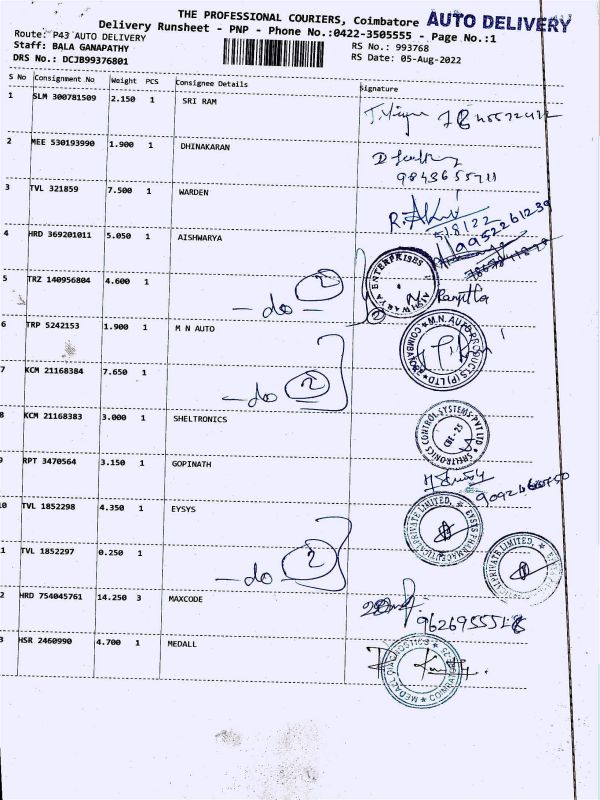 THE PROFESSIONAL COURIERS, Coimbatore AUTO DELIVERY
Delivery Runsheet - PNP - Phone No.:0422-3505555 - Page No.:1
Route: P43 AUTO DELIVERY
RS No.: 993768
Staff: BALA GANAPATHY
RS Date: 05-Aug-2022
DRS No.: DCJB99376801
S No Consignment No Weight PCS Consignee Details Signature
1 SLM 300781509 2.150 1 SRI RAM
2 MEE 530193990 1.900 1 DHINAKARAN
9843655711
3 TVL 321859 7.500 1 WARDEN
5/8/22
9952261239
4 HRD 369201011 5.050 1 AISHWARYA
AISHWARYA ENTERPRISES
5 TRZ 140956804 4.600 1 -do- 2
Ranjitha
2
6 TRP 5242153 1.900 1 M N AUTO
M.N. AUTO PRODUCTS (P) LTD COIMBATORE
7 KCM 21168384 7.650 1 -do- 2
8 KCM 21168383 3.000 1 SHELTRONICS
CONTROL SYSTEMS PVT LTD
CBE-25
9 RPT 3470564 3.150 1 GOPINATH
10 TVL 1852298 4.350 1 EYSYS
EYSYS PHARMACEUTICAL PRIVATE LIMITED,
11 TVL 1852297 0.250 1 -do- 2
PRIVATE LIMITED,
2 HRD 754045761 14.250 3 MAXCODE
3 HSR 2460990 4.700 1 MEDALL
MEDALL DIAGNOSTICS